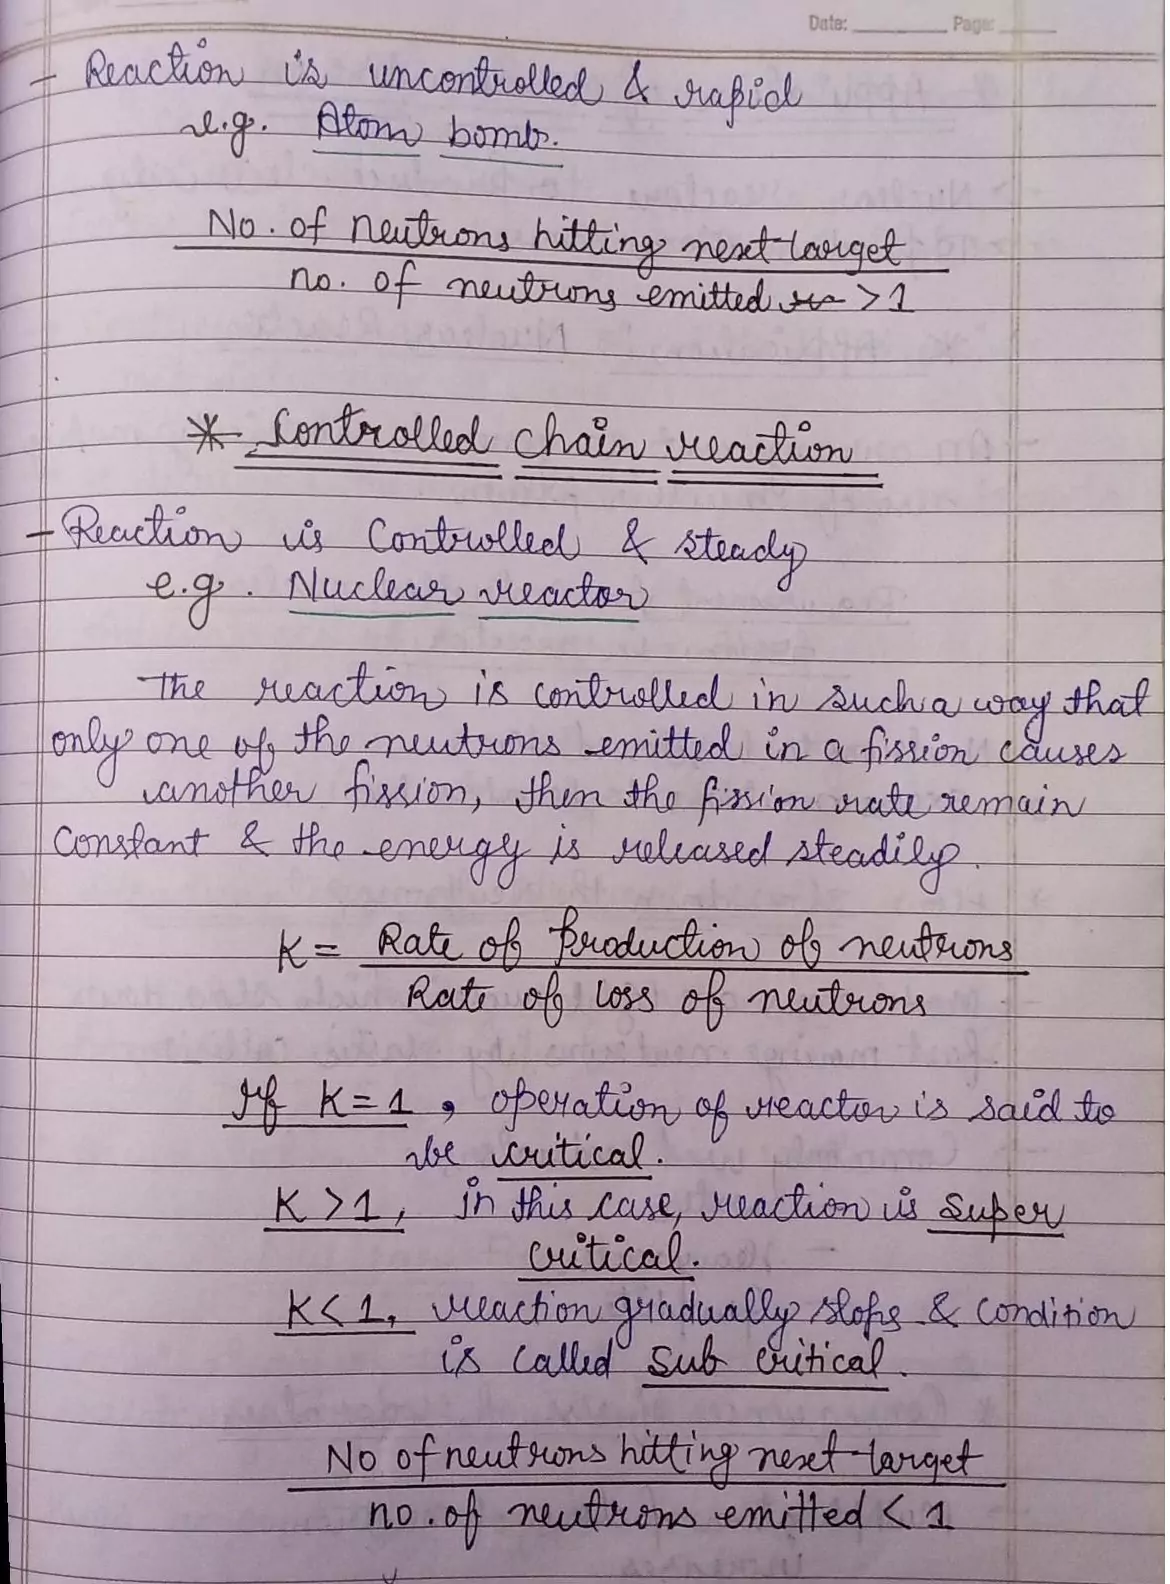 Date: Page:
- Reaction is uncontrolled & rapid
e.g. Atom bomb.
No. of neutrons hitting next target
no. of neutrons emitted > 1
* Controlled chain reaction
- Reaction is Controlled & steady
e.g. Nuclear reactor
The reaction is controlled in such a way that
only one of the neutrons emitted in a fission causes
another fission, then the fission rate remain
Constant & the energy is released steadily.
K = Rate of production of neutrons
Rate of loss of neutrons
If K = 1, operation of reactor is said to
be critical.
K > 1, in this case, reaction is super
critical.
K < 1, reaction gradually stops & condition
is called sub critical.
No of neutrons hitting next target
no. of neutrons emitted < 1